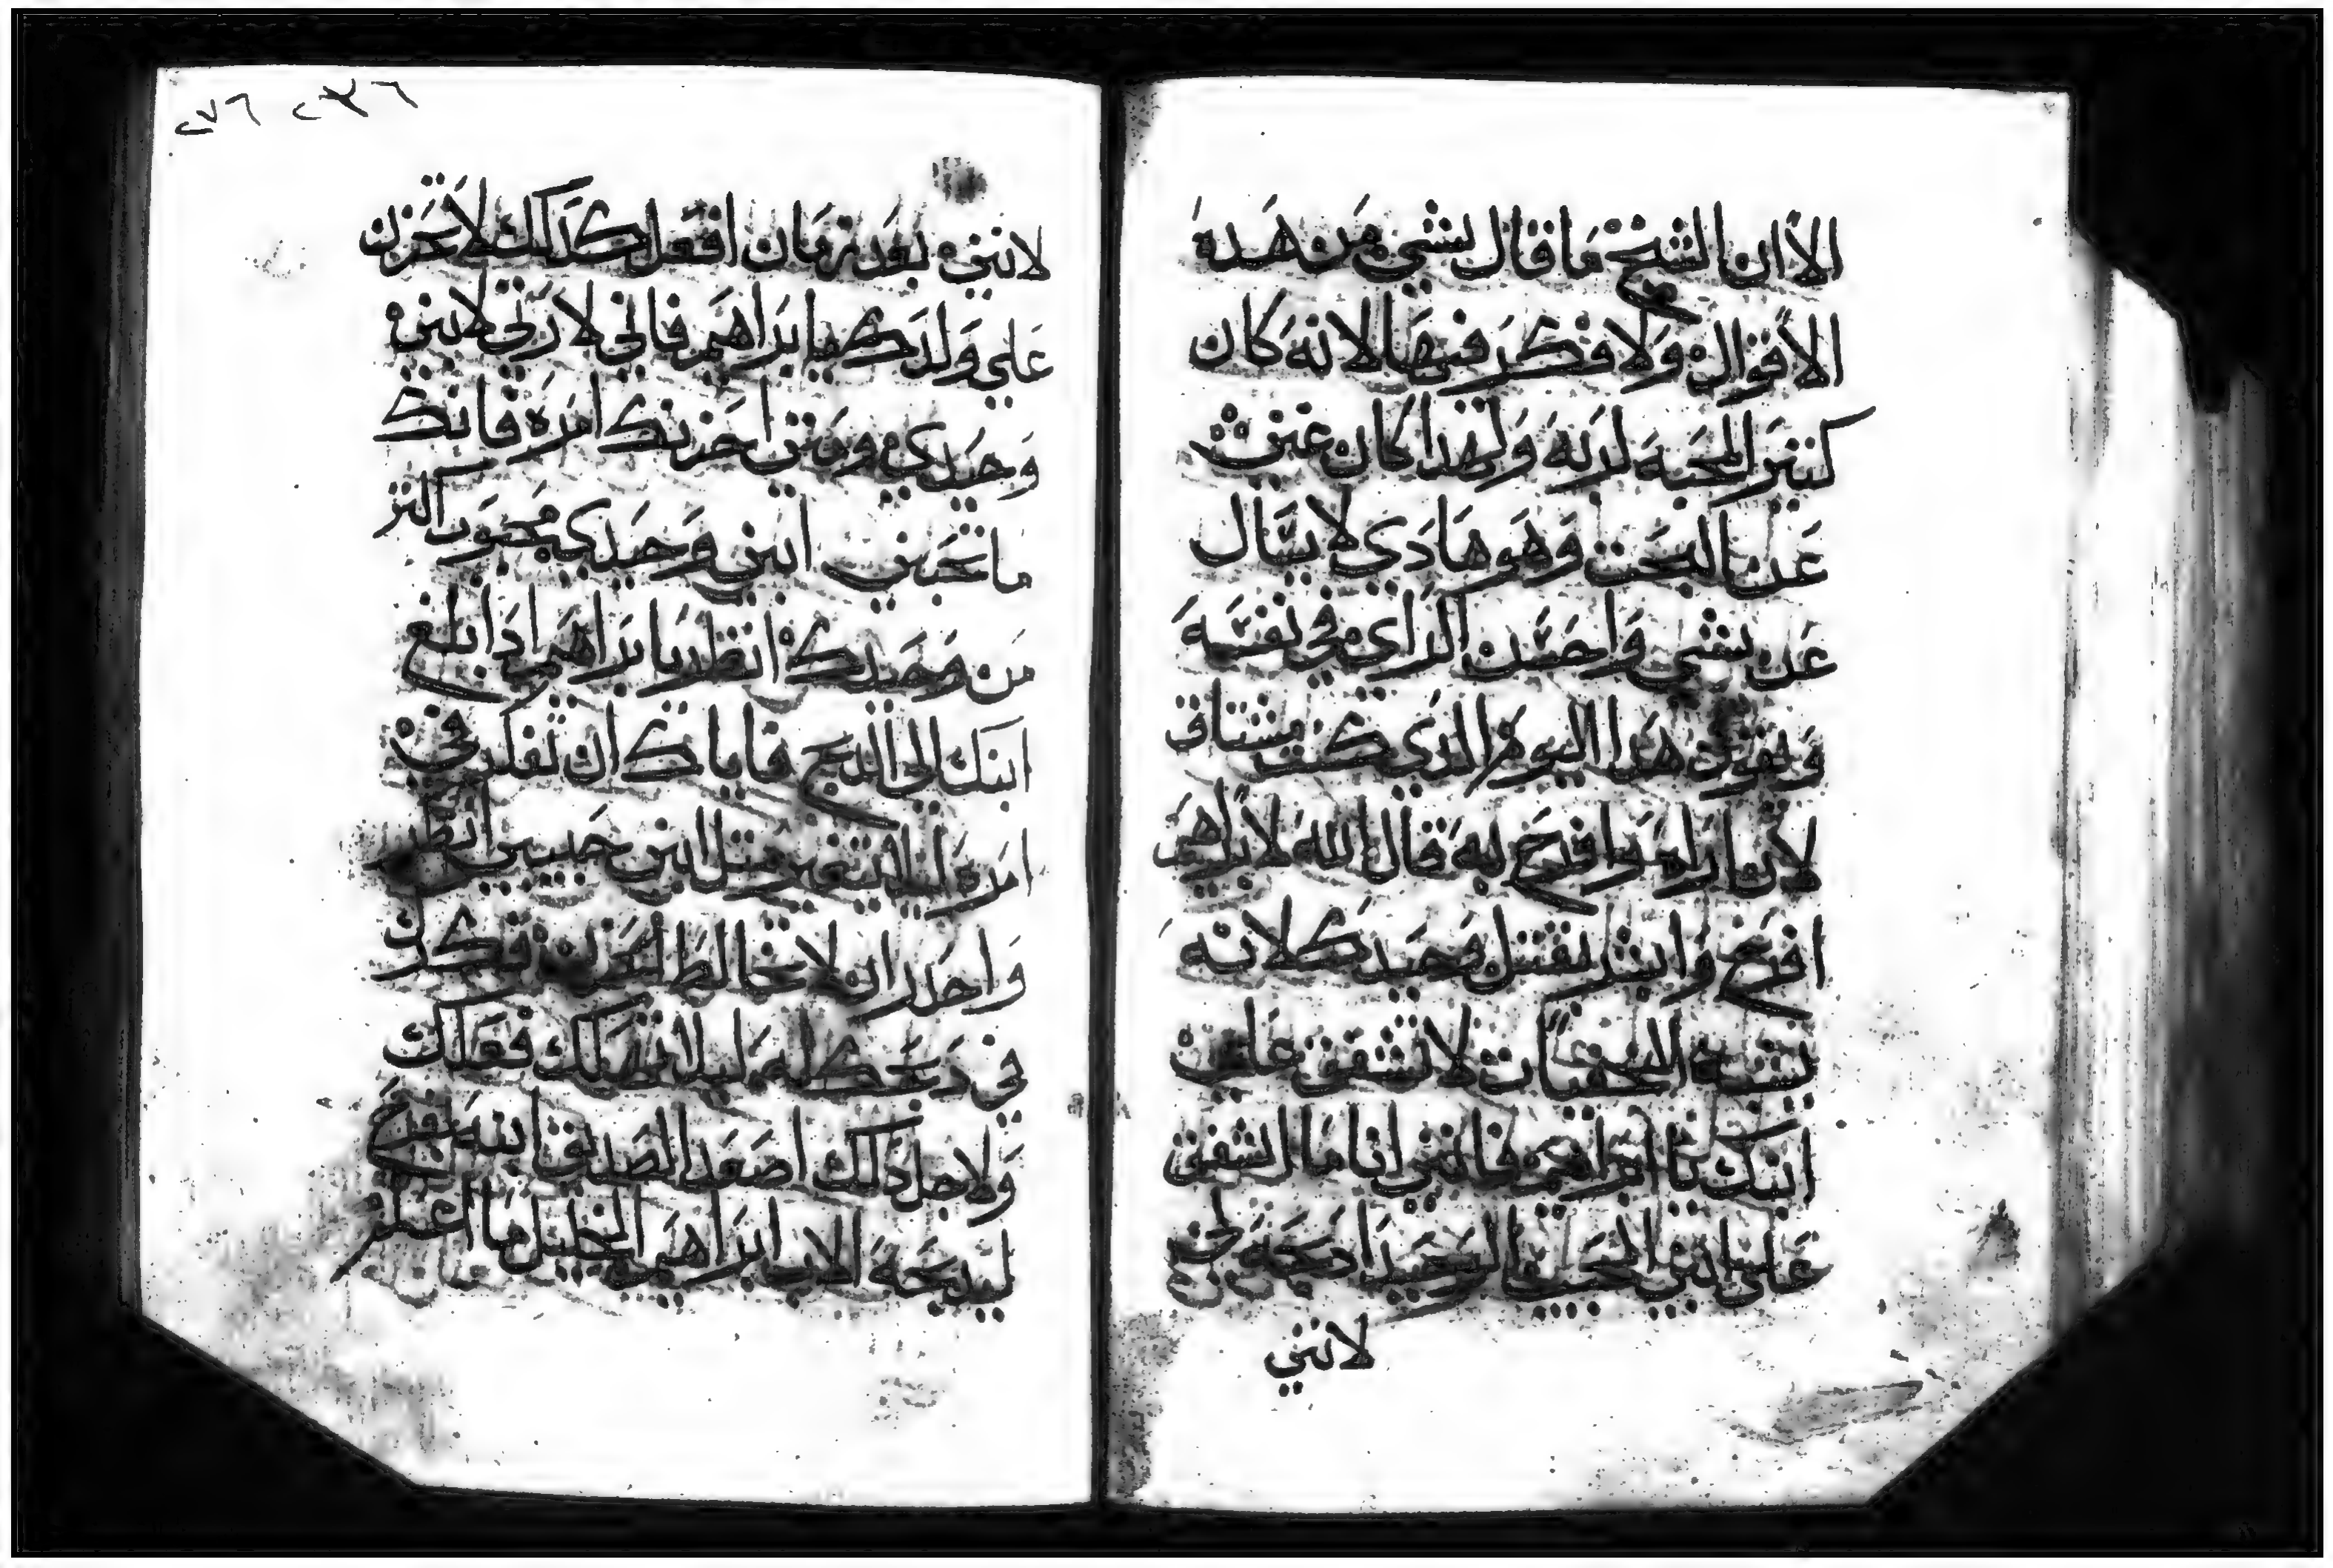 الا ان الشيخ ما قال بشي من هده
الاقوال ولا فكر فيها لانه كان
كتير المحبة لربه ولهدا كان عني
عن البحت وهو هادي لا يسال
عن شي واحسن الراي في نفسه
وبقول هدا اليوم الدي كنت مشتاق
لان اراه وافرح به قال الله لابراهيم
افرح وابشر بقتل وحيدك لانه
يشبه الخفيات لا تشفق علي
ابنك يا ابراهيم فانني انا ما اشفق
علي ابني الحبيب الوحيد ادبحه
لانني
٢٣٦ ٢٧٦
لانني بعد زمان افعل كدلك لا تحزن
علي ولدك يا ابراهيم فالي لارتي لابني
وحيدي ومتي احزنك امره فانك
ما تحبني ابني وحيدي محبوب اكتر
من وحيدك انظر يا ابراهيم ادا بلغ
ابنك الي الدبح فاياك ان تفكر في
امره ليلا يتغير قتل ابني حبيبي انظر
واحدر ان لا تخالط الحزن فكرك
في دبحك له ليلا فعلك
ولاجل دلك اصعد الصديق ابنه بفرح
ليدبحه الاب ابراهيم الخليل ما اعظم